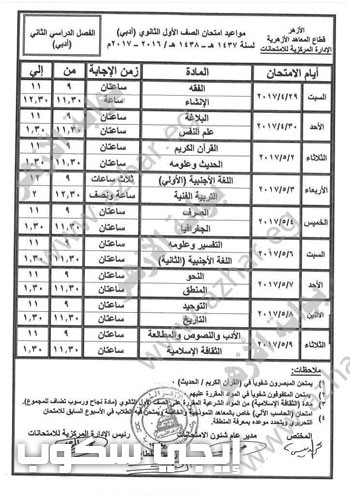 الأزهر
قطاع المعاهد الأزهرية
الإدارة المركزية للامتحانات
مواعيد امتحان الصف الأول الثانوي (أدبي)
لسنة ١٤٣٧ هـ - ١٤٣٨ هـ / ٢٠١٦ - ٢٠١٧م
الفصل الدراسي الثاني
(أدبي)
أيام الامتحان المادة زمن الإجابة من إلى
السبت ٢٠١٧/٤/٢٩ الفقه ساعتان ٩ ١١
الإنشاء ساعة ١١,٣٠ ١٢,٣٠
الأحد ٢٠١٧/٤/٣٠ البلاغة ساعتان ٩ ١١
علم النفس ساعتان ١١,٣٠ ١,٣٠
الثلاثاء ٢٠١٧/٥/٢ القرآن الكريم ساعتان ٩ ١١
الحديث وعلومه ساعتان ١١,٣٠ ١,٣٠
الأربعاء ٢٠١٧/٥/٣ اللغة الأجنبية (الأولي) ثلاث ساعات ٩ ١٢
التربية الفنية ساعة ونصف ١٢,٣٠ ٢
الخميس ٢٠١٧/٥/٤ الصرف ساعتان ٩ ١١
الجغرافيا ساعتان ١١,٣٠ ١,٣٠
السبت ٢٠١٧/٥/٦ التفسير وعلومه ساعتان ٩ ١١
اللغة الأجنبية (الثانية) ساعتان ١١,٣٠ ١,٣٠
الأحد ٢٠١٧/٥/٧ النحو ساعتان ٩ ١١
المنطق ساعتان ١١,٣٠ ١,٣٠
الاثنين ٢٠١٧/٥/٨ التوحيد ساعتان ٩ ١١
التاريخ ساعتان ١١,٣٠ ١,٣٠
الثلاثاء ٢٠١٧/٥/٩ الأدب والنصوص والمطالعة ساعتان ٩ ١١
الثقافة الإسلامية ساعتان ١١,٣٠ ١,٣٠
ملاحظات:
يمتحن المبصرون شفوياً في (القرآن الكريم / الحديث).
يمتحن المكفوفون شفوياً في جميع المواد المقررة عليهم.
مادة (الثقافة الإسلامية) من المواد الشرعية المقررة على الصف الأول الثانوي (مادة نجاح ورسوب تضاف للمجموع).
امتحان (الحاسب الآلي) خاص بالمعاهد النموذجية والخاصة ويمتحن فيه الطلاب في الأسبوع السابق للامتحانات
التحريرية ويتحدد موعده بمعرفة المنطقة.
المختص
مدير عام شئون الامتحانات
رئيس الإدارة المركزية للامتحانات
بوابة الأزهر
azhar.eg
إيجي سكوب